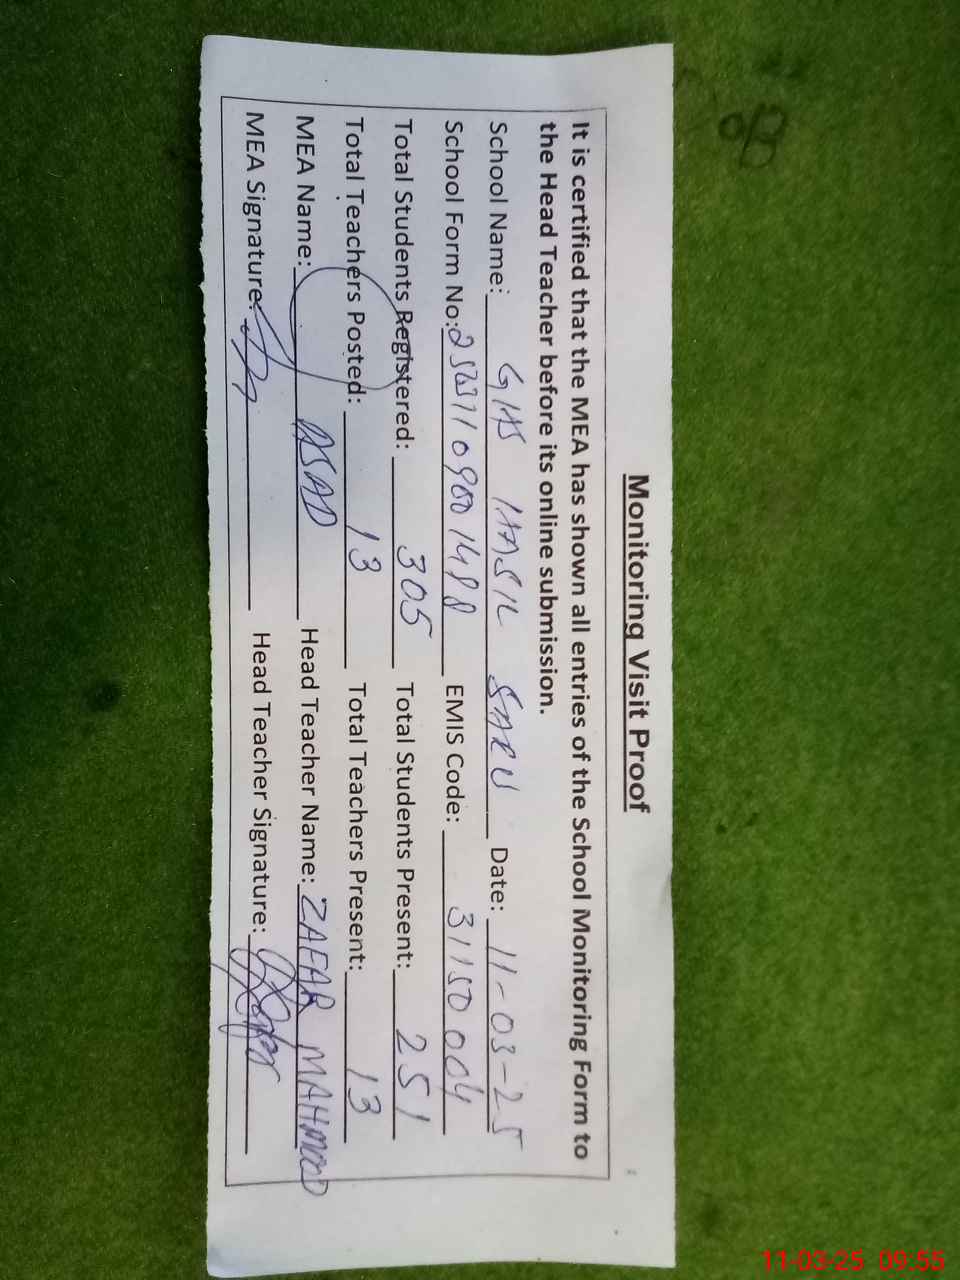 Monitoring Visit Proof
It is certified that the MEA has shown all entries of the School Monitoring Form to
the Head Teacher before its online submission.
School Name: SARU Date: 11-03-25
School Form No: EMIS Code: 31150004
Total Students Registered: 305 Total Students Present: 251
Total Teachers Posted: 13 Total Teachers Present: 13
MEA Name: ASAD Head Teacher Name: ZAFAR MAHMOOD
MEA Signature: Head Teacher Signature:
11-03-25 09:55